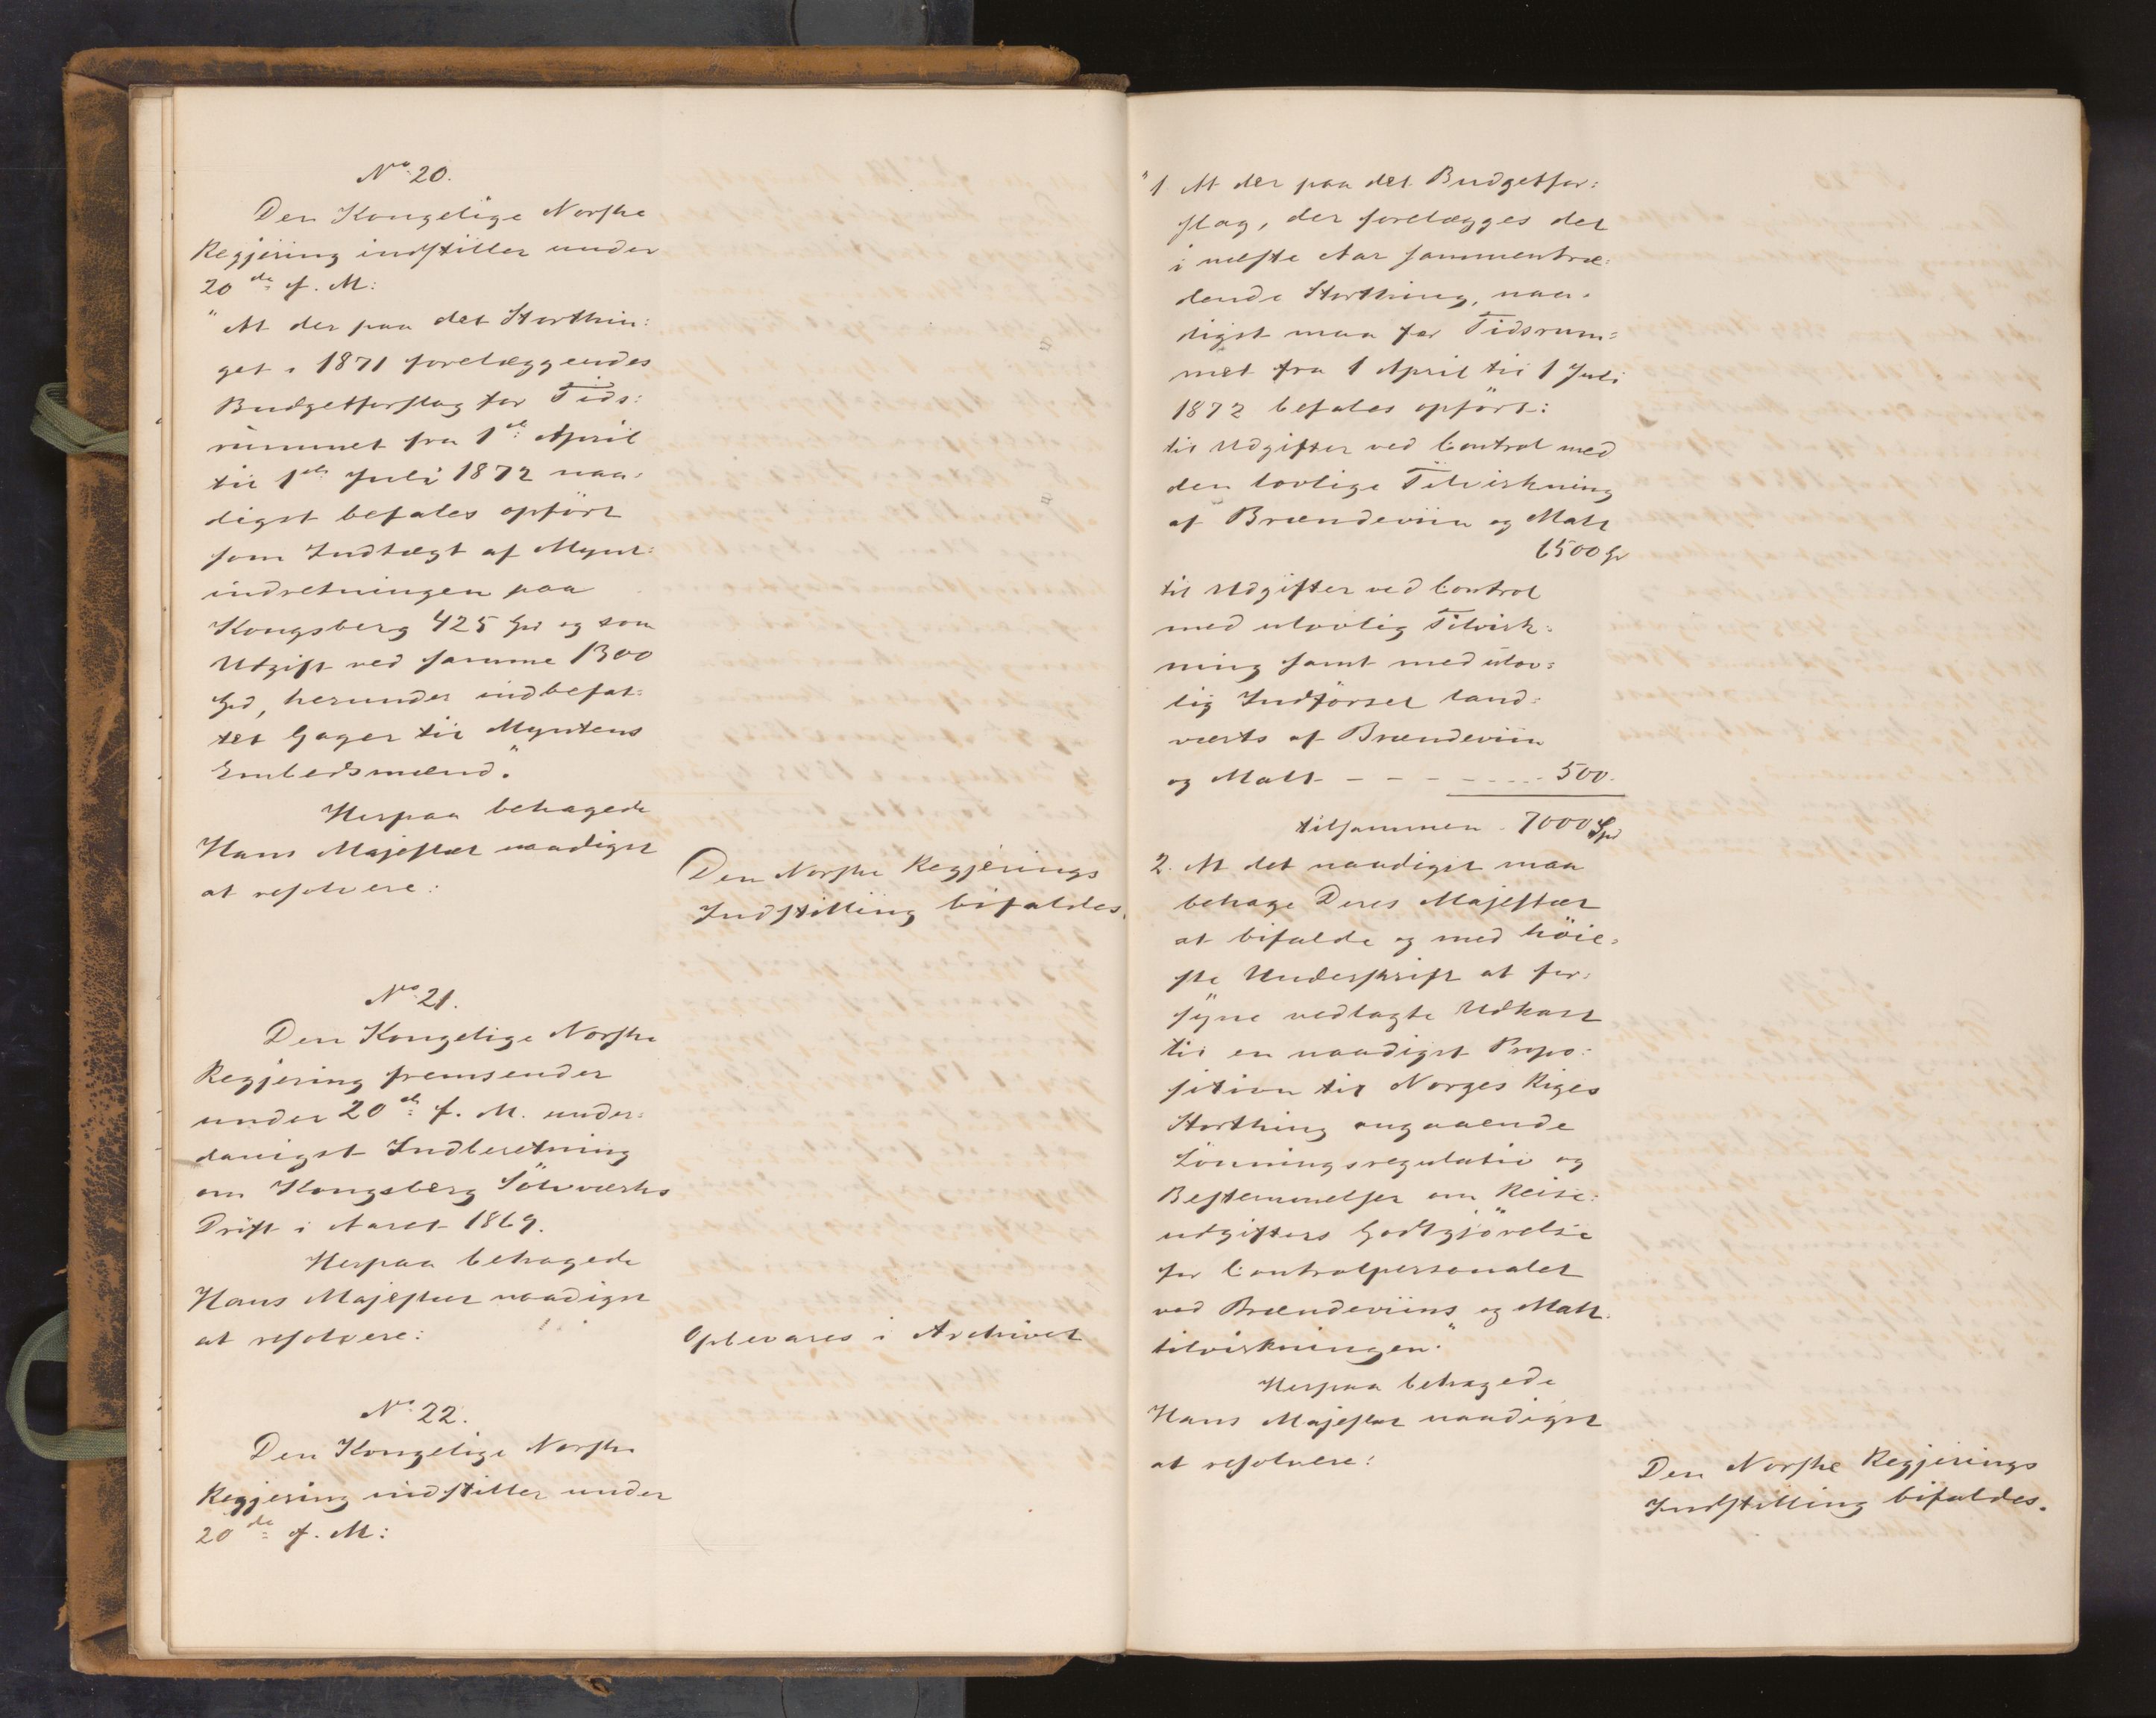 No 20.
Den Kongelige Norske
Regjering indstiller under
20de f. M:
"At der paa det Storthin:
get i 1871 forelæggendes
Budgetforslag for Tids:
rummet fra 1ste April
til 1ste Juli 1872 naa:
digst befales opført
som Indtægt af Mynt:
indretningen paa
Kongsberg 425 Spd og som
Udgift ved samme 1300
Spd, herunder indbefat:
tet Gager til Myntens
Embedsmænd."
Herpaa behagede
Hans Majestæt naadigst
at resolvere:
Den Norske Regjerings
Indstilling bifaldes.
No 21.
Den Kongelige Norske
Regjering fremsender
under 20de f. M. under:
danigst Indberetning
om Kongsberg Sölvværks
Drift i Aaret 1869.
Herpaa behagede
Hans Majestæt naadigst
at resolvere:
Opbevares i Archivet
No 22.
Den Kongelige Norske
Regjering indstiller under
20de f. M:
"1 At der paa det Budgetfor:
slag, der forelægges det
i næste Aar sammentræ:
dende Storthing, naa:
digst maa for Tidsrum:
met fra 1 April til 1 Juli
1872 befales opfört:
til Udgifter ved Control med
den lovlige Tilvirkning
af Brændeviin og Malt
6500 Spd
til Udgifter ved Control
med ulovlig Tilvirk:
ning samt med ulov:
lig Indförsel land:
værts af Brændeviin
og Malt - - - - - - - 500.
tilsammen . 7000 Spd
2. At det naadigst maa
behage Deres Majestæt
at bifalde og med höie:
ste Underskrift at for:
syne vedlagte Udkast
til en naadigst Propo:
sition til Norges Riges
Storthing angaaende
Lönningsregulativ og
Bestemmelser om Reise:
udgifters Godtgjörelse
for Controlpersonalet
ved Brændeviins og Malt
tilvirkningen."
Herpaa behagede
Hans Majestæt naadigst
at resolvere:
Den Norske Regjerings
Indstilling bifaldes.